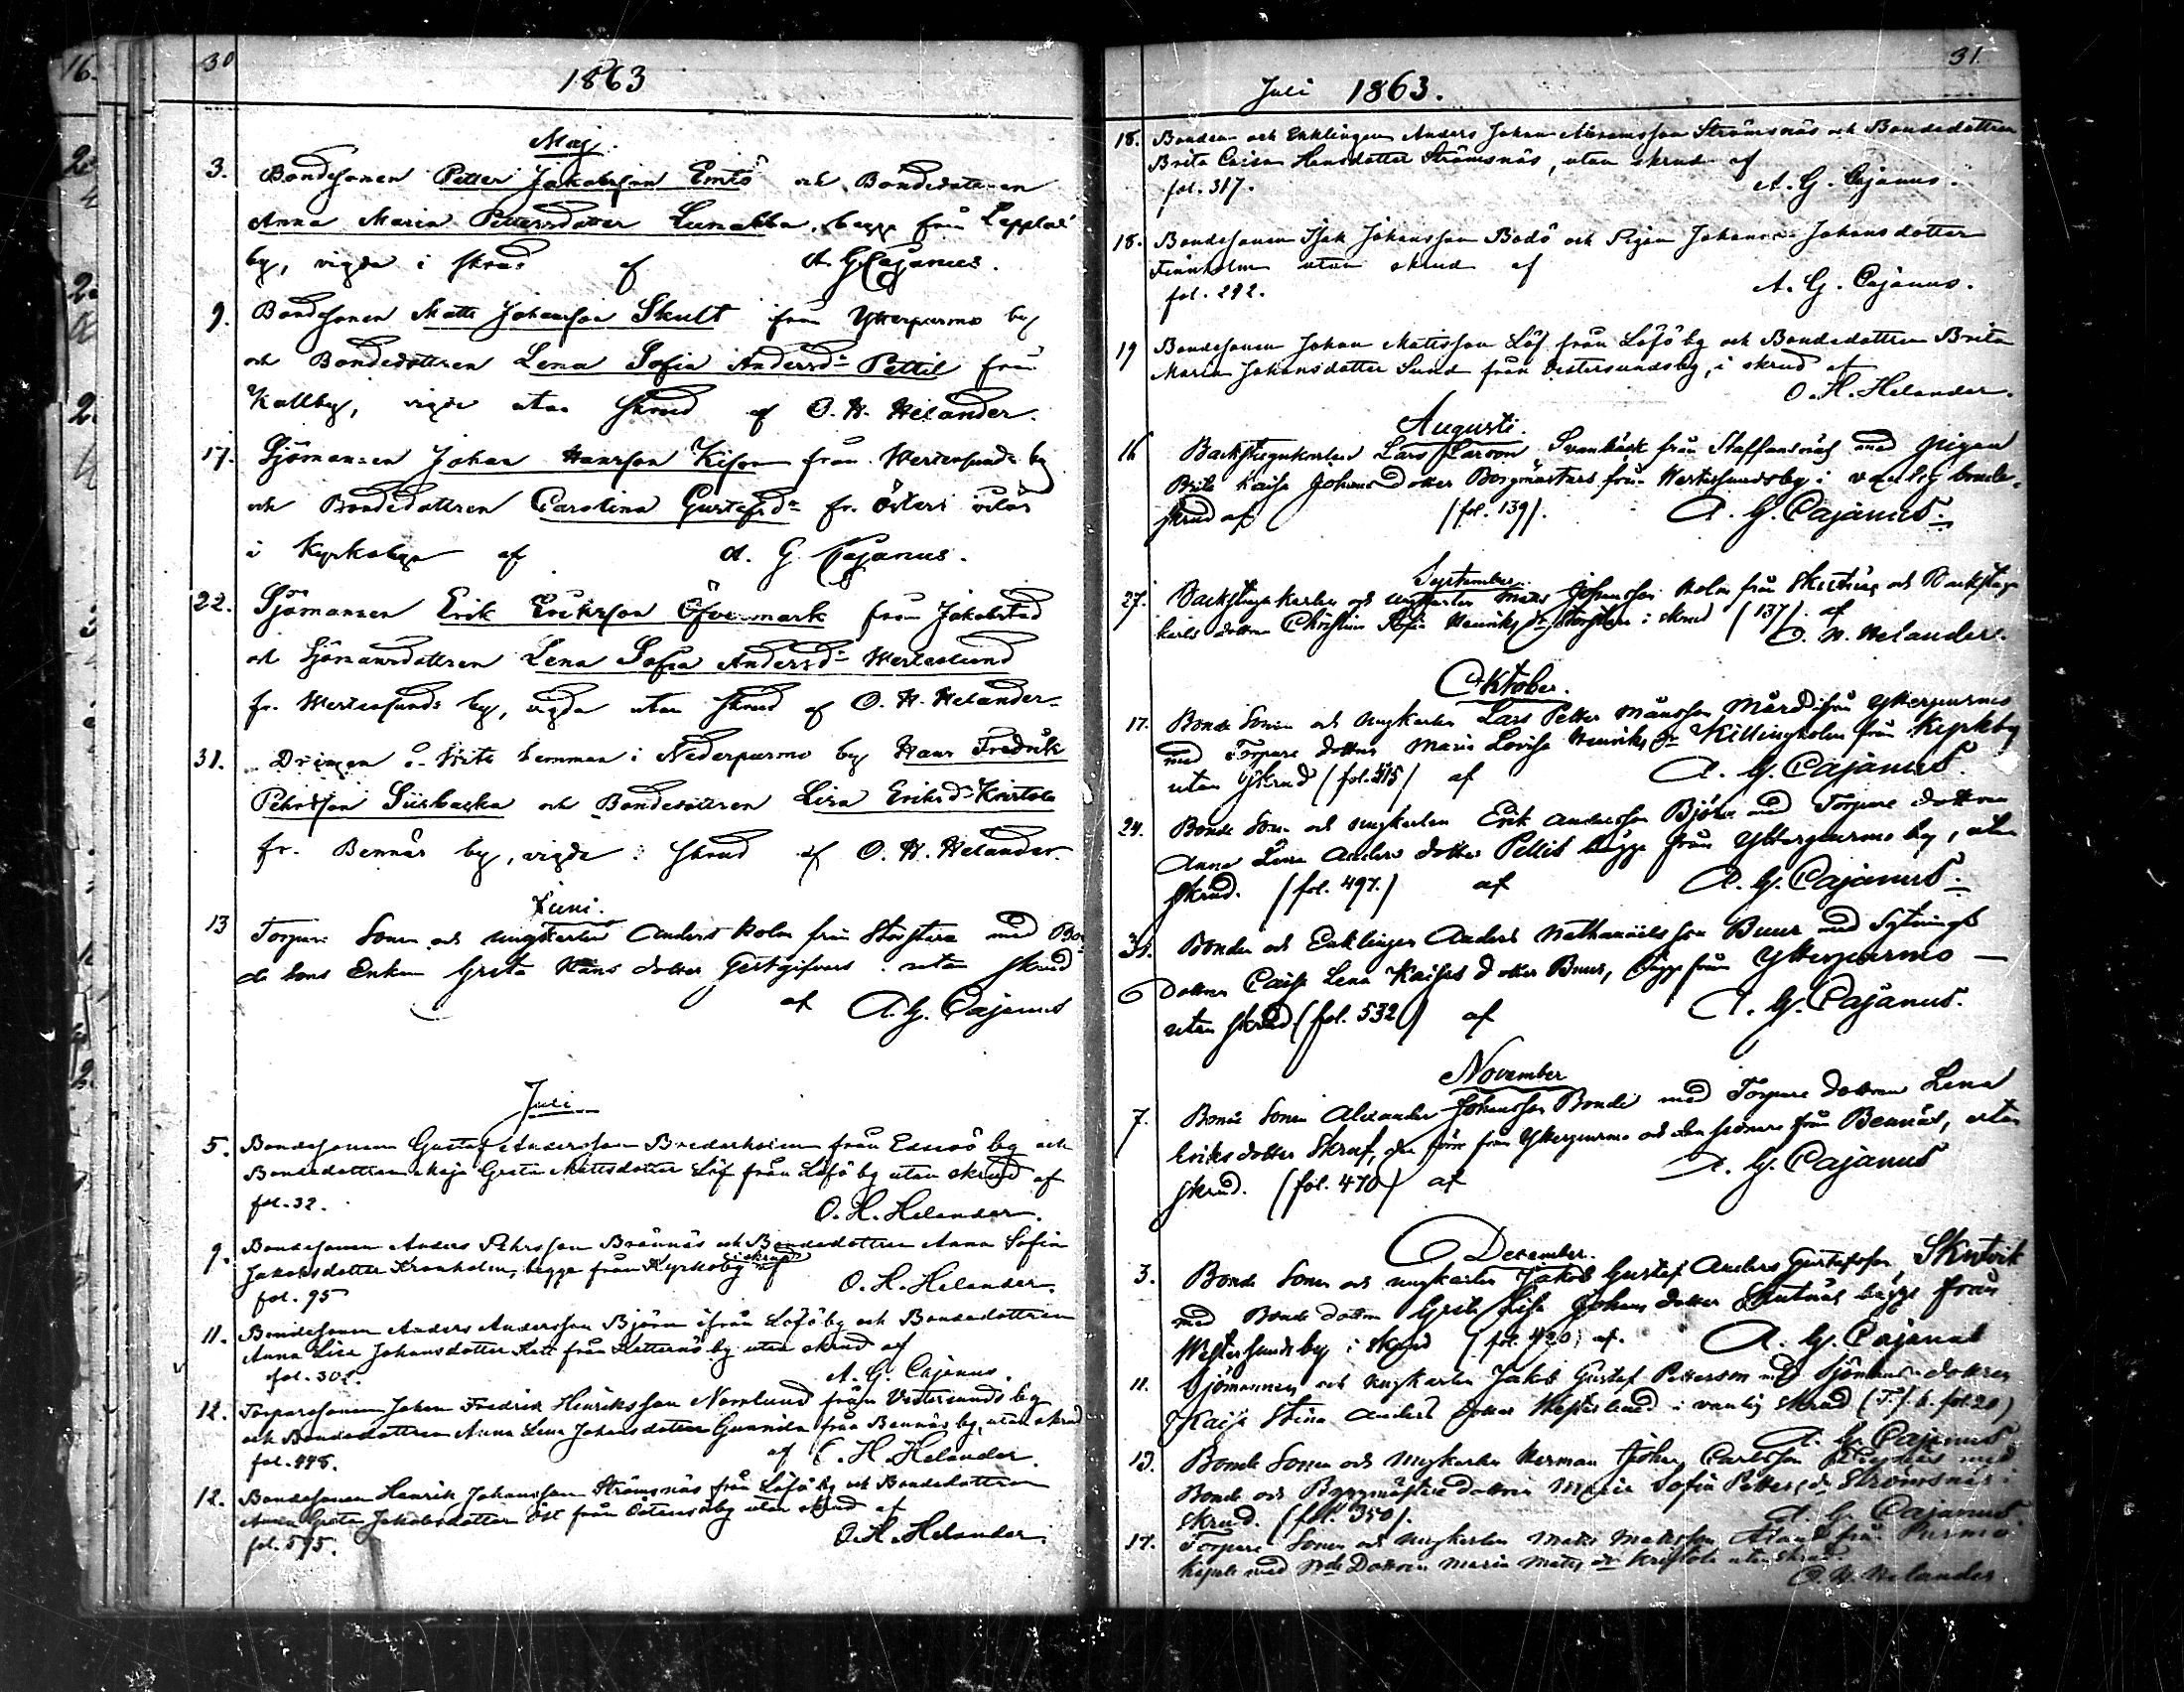 30
1863
Maj.
3. Bondesonen Petter Jakobsson Emtö och Bondedottren
Anna Maria Pettersdotter Lunabba, begge från Lepplax
by, vigde i skrud af A. G. Cajanus.
9. Bondesonen Matts Johansson Skult från Ytterpurmo by
och Bondedottren Lena Sofia Andersdr Pettil från
Kållby, vigde utan skrud af O. H. Helander.
17. Sjömannen Johan Hansson från Westersunds by
och Bondedottren Carolina Gustafsdr fr. Östersundsby
i Kyrkoby af A. G. Cajanus.
22. Sjömannen Erik Eriksson Öfvermark från Jakobstad
och Sjömansdottren Lena Sofia Andersdr Westerlund
fr. Westersunds by, vigda utan skrud af O. H. Helander.
31. Drängen å hemman i Nederpurmo by Hans Fredrik
Pehrsson Siirbacka och Bondedottren Lisa Eriksdr Kristola
fr. Bennäs by, vigde i skrud af O. H. Helander.
Juni.
13 Torpare Sonen och ungkarlen Anders Holm från med Bon-
de Sons Enkan Greta Hans dotter Gestgifvars utan skrud
af A. G. Cajanus
Juli
5. Bondesonen Gustaf Andersson Brederholm från Edsevö by och
Bondedottren Maja Greta Mattsdotter Löf från Löfö by utan skrud af
fol. 32. O. H. Helander.
9. Bondesonen Anders Pehrsson Brännäs och Bondedottren Anna Sofia
Jakobsdotter Kronholm, begge från Kyrkoby i skrud af
fol. 95 O. H. Helander.
11. Bondesonen Anders Andersson Björn ifrån Löfö by och Bondedottren
Anna Lisa Johansdotter Katt från Katternö by utan skrud af
fol. 302. A. G. Cajanus.
12. Torparesonen Johan Fredrik Henriksson Norrlund från Vestersunds by
och Bondedottren Anna Lena Johansdotter Gunnila från Bennäs by, utan skrud
fol. 448. af O. H. Helander.
12. Bondesonen Henrik Johansson Strömsnäs från Löfö by och Bondedottren
Anna Greta Jakobsdotter Öst från Östensö by utan skrud af
fol. 575. O. H. Helander.
31.
Juli 1863.
18. Bonden och Enklingen Anders Johan Abramsson Strömsnäs och Bondedottren
Brita Caisa Hansdotter Strömsnäs, utan skrud af
fol. 317. A. G. Cajanus.
18. Bondesonen Isak Johansson Bodö och Pigan Johanna Johansdotter
Finnholm utan skrud af
fol. 292. A. G. Cajanus.
19 Bondesonen Johan Mattsson Löf från Löfö by och Bondedottren Brita
Maria Johansdotter Sund från Vestersundsby, i skrud af
O. H. Helander.
Augusti.
16 Backstugukarlen Lars Larson Svanbäck från Staffansnäs med pigan
Brita Kaisa Johans dotter Borgmästars från Westersundsby i vanlig bonde-
skrud af (fol. 139). A. G. Cajanus.
September.
27. Backstugukarlen och ungkarlen Matts Johansson Holm från och Backstugu
karls dottren Christina Sofia Henriks dr i skrud (137). af
O. H. Helander.
Oktober.
17. Bonde Sonen och ungkarlen Lars Petter Månsson Mård ifrån Ytterpurmo
med Torpare dottren Maria Lovisa Henriks dr Killingholm från Kyrkby
utan skrud (fol. 315) af A. G. Cajanus.
24. Bonde Sonen och ungkarlen Erik Andersson Björn med Torpare dottren
Anna Lena Anders dotter Pellis bägge från Ytterpurmo by, utan
skrud. (fol. 497.) af A. G. Cajanus.
31. Bonden och Enklingen Anders Nathanaëlsson Buur med Sytnings
Dottren Caisa Lena Kaisas dotter Buur, bägge från Ytterpurmo —
utan skrud (fol. 532) af A. G. Cajanus.
November
7. Bonde Sonen Alexander Johansson Bonde med Torpare dottren Lena
Eriks dotter Skruf, den förre från Ytterpurmo och den sednare från Bennäs, utan
skrud. (fol. 470) af A. G. Cajanus
December.
3. Bonde Sonen och ungkarlen Jakob Gustaf Anders Gustafsson Skutvik
med Bonde dottren Greta Lisa Johans dotter Skutnäs bägge från
Westersundsby i skrud (fol. 420) af. A. G. Cajanus
11. Sjömannen och ungkarlen Jakob Gustaf Petterson med Sjömans dottren
Kaisa Stina Anders dotter Westerlund i vanlig skrud (T. f. b. fol. 20)
A. G. Cajanus
13. Bonde Sonen och ungkarlen Herman Carlsson med
Bonde och Byggmästare dottren Maria Sofia Petters dr Strömsnäs i
skrud. (fol. 350). A. G. Cajanus.
17. Torpare Sonen och ungkarlen Matts Mattsson från Purmo
Kapell med Bde Dottren Maria Matts dr Kristola utan skrud.
O. H. Helander